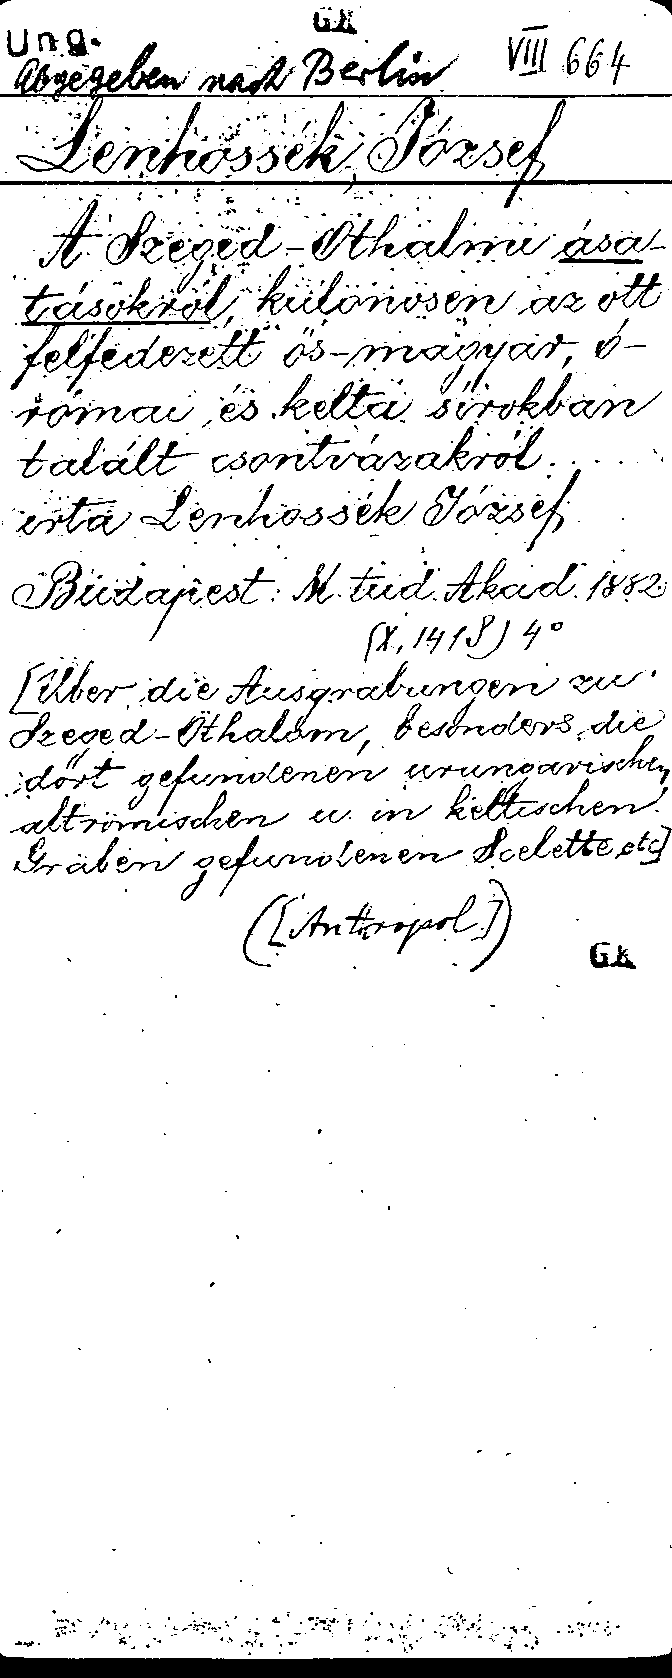 GK
Ung.
Abgegeben nach Berlin VIII 664
Lenhossék, József
A Szeged-Öthalmi ása-
tásokról, különösen az ott
felfedezett ős-magyar, ó-
római és kelta sírokban
talált csontvázakról....
irta Lenhossék József
Budapest: M. tud. Akad. 1882
(X, 141 S) 4°
[Über die Ausgrabungen zu
Szeged-Öthalom, besonders die
dort gefundenen urungarischen
altrömischen u. in keltischen
Gräben gefundenen Scelette etc]
([Anthropol.])
GK